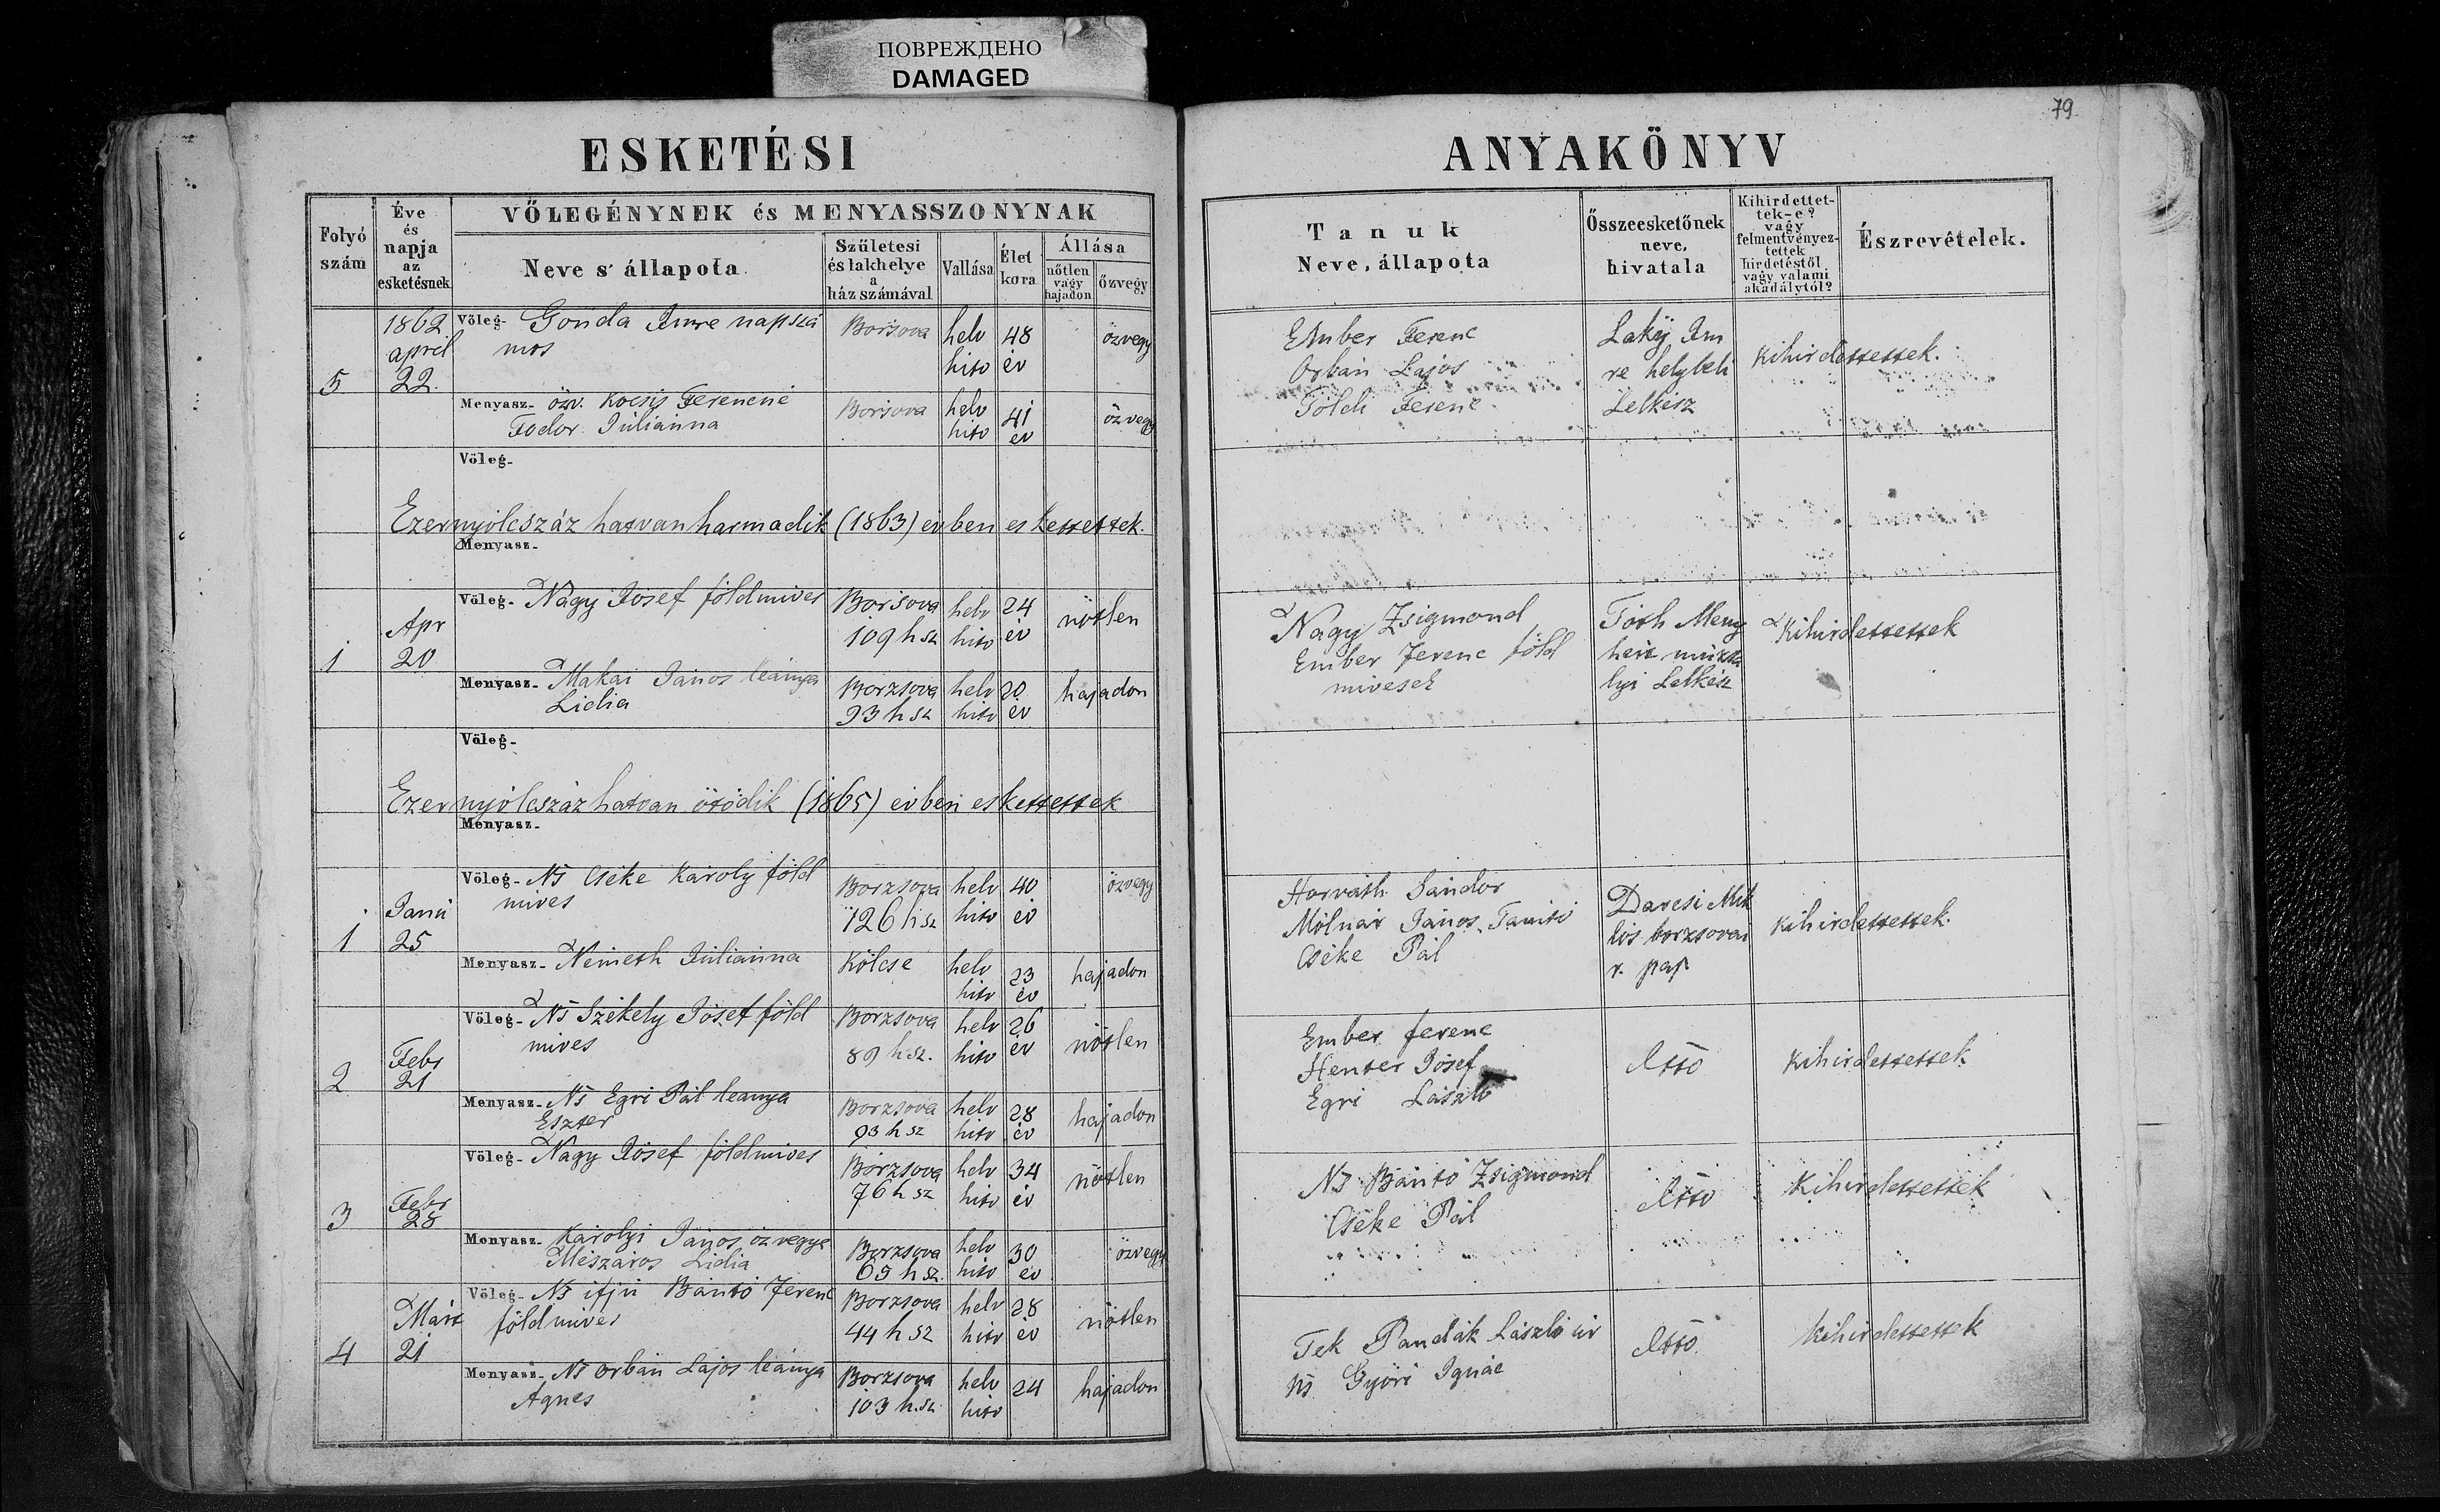 ПОВРЕЖДЕНО
DAMAGED
79.
ESKETÉSI
ANYAKÖNYV
Folyó szám
Éve és napja az esketésnek
VŐLEGÉNYNEK és MENYASSZONYNAK
Neve s' állapota
Születesi és lakhelye a ház számával
Vallása
Élet kora
Állása
nőtlen vagy hajadon
özvegy
Tanuk
Neve, állapota
Összeesketőnek neve, hivatala
Kihirdettet-tek-e? vagy felmentvényez-tettek hirdetéstől vagy valami akadálytól?
Észrevételek.
5
1862 april 22.
Vőleg- Gonda Imre napszá
mos
Borsova
helv hitv
48 év
özvegy
Menyasz- özv. Kocsis Ferencné
Fodor Juliánna
Borsova
helv hitv
41 év
özvegy
Ember Ferenc
Orbán Lajos
Földi Ferenc
Laky Im
re helybeli
Lelkész
kihirdettettek.
Vőleg-
Ezernyólcszáz hatvanharmadik (1863) évben eskettettek.
Menyasz-
1
Apr 20
Vőleg- Nagy József földmives
Borsova
109 h sz
helv hitv
24 év
nőtlen
Menyasz- Makai János leánya
Lidia
Borzsova
93 h sz
helv hitv
20 év
hajadon
Nagy Zsigmond
Ember Ferenc föld
mivesek
Tóth Meny
hért muzsa
lyi Lelkész
Kihirdettettek
Vőleg-
Ezernyólcszázhatvan ötödik (1865) évben eskettettek
Menyasz-
1
Janu 25
Vőleg- Ns Cséke Károly föld
mives
Borzsova
126 h sz
helv hitv
40 év
özvegy
Menyasz- Németh Juliánna
Kölcse
helv hitv
23 év
hajadon
Horváth Sándor
Mólnár János Tanitó
Cséke Pál
Darcsi Mik
lós borzsovai
r. pap
kihirdettettek.
2
Febr 21
Vőleg- Ns Székely József föld
mives
Borzsova
89 h sz.
helv hitv
26 év
nőtlen
Menyasz- Ns Egri Pál leánya
Eszter
Borzsova
93 h sz
helv hitv
28 év
hajadon
Ember ferenc
Henter József
Egri László
Atto
kihirdettettek
3
Febr 28
Vőleg- Nagy József földmives
Borzsova
76 h sz
helv hitv
34 év
nőtlen
Menyasz- Károlyi János özvegye
Mészáros Lidia
Borzsova
65 h sz.
helv hitv
30 év
özvegy
Ns Bántó Zsigmond
Cséke Pál
Atto
Kihirdettettek
4
Márt 21
Vőleg- Ns ifju Bántó Ferenc
földmives
Borzsova
44 h sz
helv hitv
28 év
nőtlen
Menyasz- Ns Orbán Lajos leánya
Ágnes
Borzsova
103 h.sz.
helv hitv
24
hajadon
Tek Pandák László úr
Ns Györi Ignác
Atto.
kihirdettettek